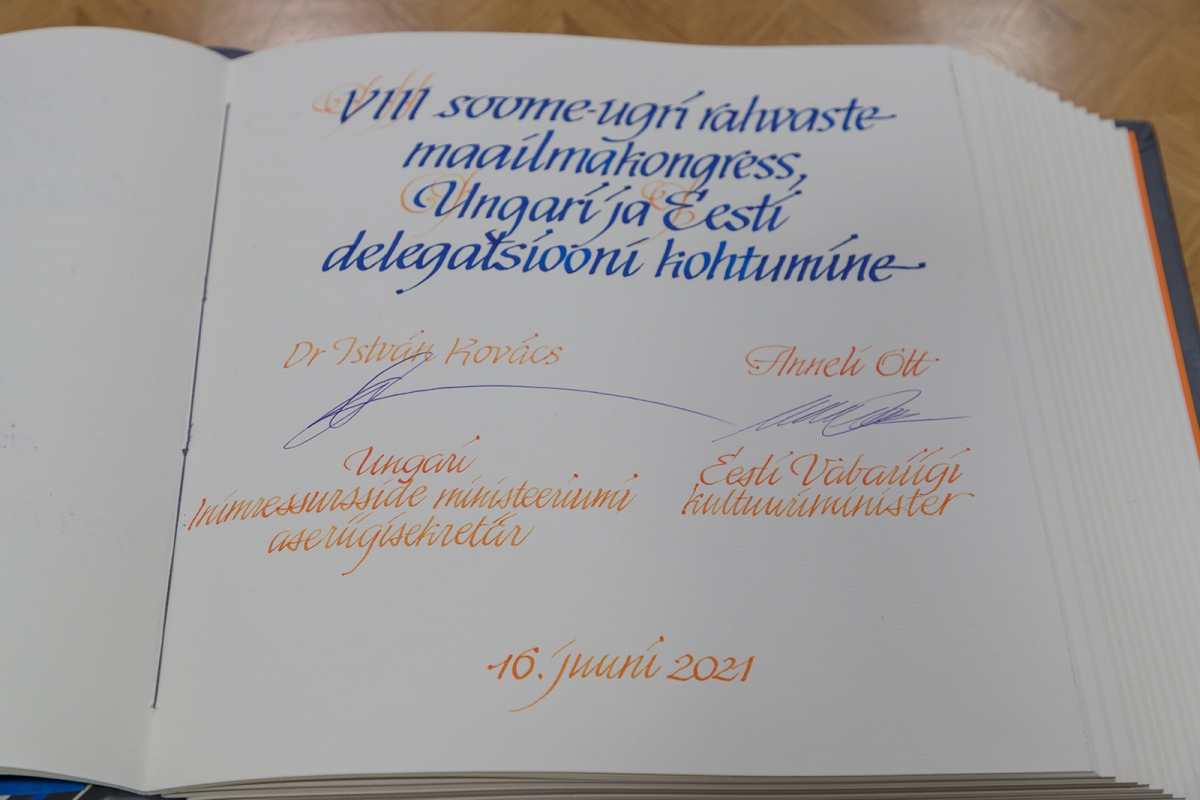 VIII soome-ugri rahvaste
maailmakongress,
Ungari ja Eesti
delegatsiooni kohtumine
Dr István Kovács
Anneli Ott
Ungari
Inimressursside ministeeriumi
aseriigisekretär
Eesti Vabariigi
kultuuriminister
16. juuni 2021